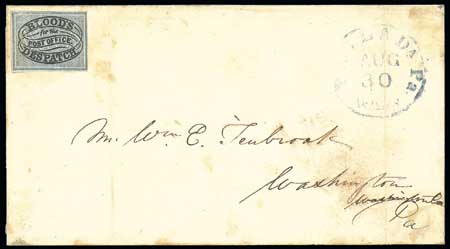 BLOOD'S
for the
POST OFFICE
DESPATCH
PHILADA. Pa.
AUG
30
Mr. Wm E. Tenbrook
Washington
Washington Co
Pa